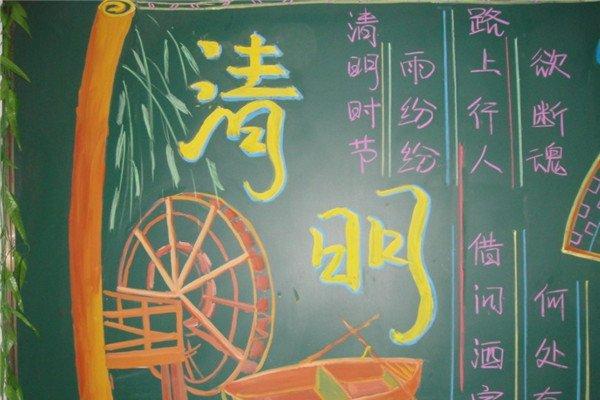 清明
清明时节
雨纷纷
路上行人
欲断魂
借问酒家
何处有